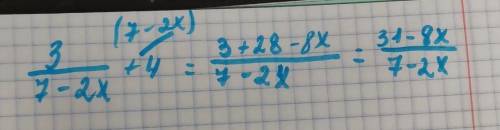 (7-2x)
3/(7-2x) + 4 = (3+28-8x)/(7-2x) = (31-8x)/(7-2x)